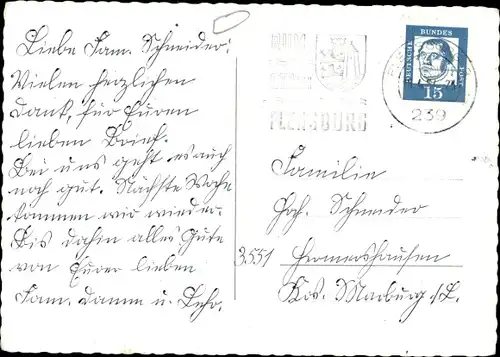 Liebe Fam. Schneider!
Vielen herzlichen
Dank, für Euren
lieben Brief.
Bei uns geht es auch
noch gut. Nächste Woche
kommen wir wieder.
Bis dahin alles Gute
von Eurer lieben
Fam. Damm u.
FLENSBURG
239
DEUTSCHE BUNDESPOST
15
Familie
Hch. Schneider
3551 Hermershausen
Krs. Marburg /L.